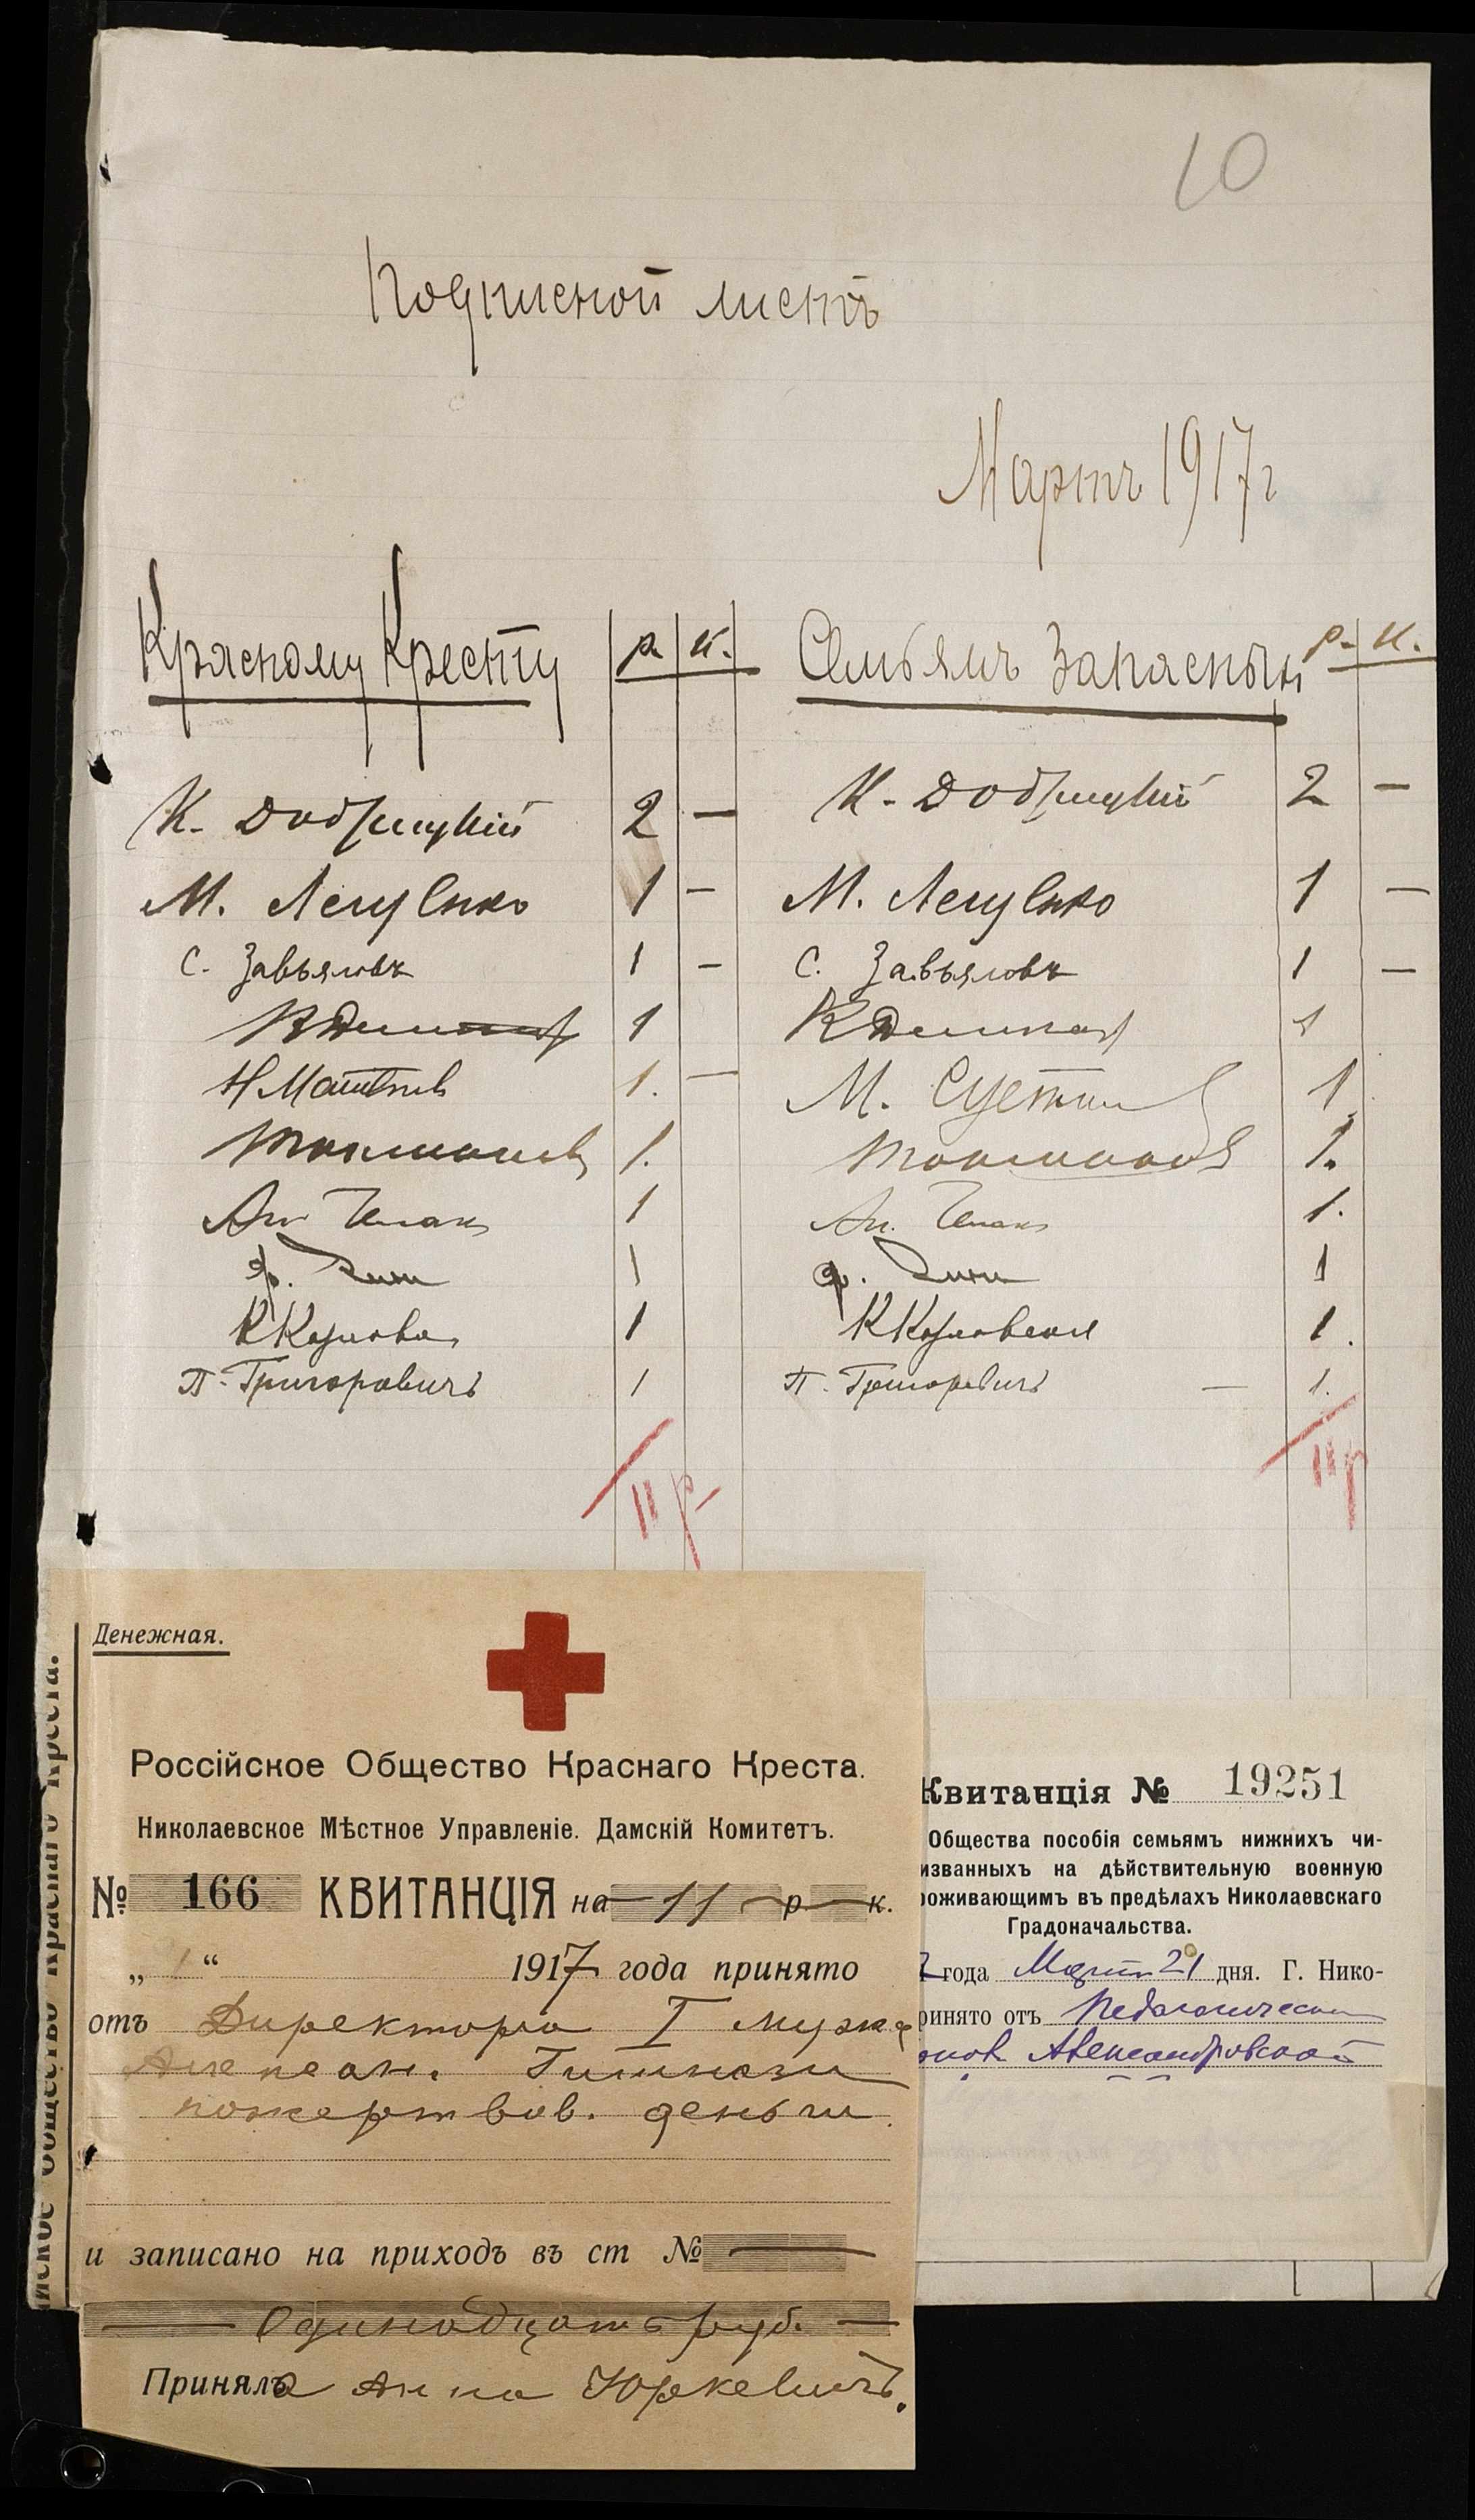 10
Подписной листъ
Мартъ 1917 г
Красному Кресту р. к. Семьямъ Запасныхъ р. к.
К. Добрицкій 2 — К. Добрицкій 2 —
М. Лещенко 1 — М. Лещенко 1 —
С. Завьяловъ 1 — С. Завьяловъ 1 —
1 1
Н 1. — М. 1
1. 1.
Ан. 1 Ан. 1.
Ф. 1 Ф. 1
К 1 К 1.
П. Григоровичъ 1 П. Григоровичъ — 1.
11 р 11 р
Денежная.
Россійское Общество Краснаго Креста.
Николаевское Мѣстное Управленіе. Дамскій Комитетъ.
№ 166 КВИТАНЦІЯ на 11 р — к.
„ 1 “ 1917 года принято
отъ Директора I мужск
Алексан. Гимнази
пожертвов. деньги.
и записано на приходъ въ ст №
Одинадцать руб.
Приняла Анна Юркевичъ.
нское Общество Краснаго Креста.
Квитанція № 19251
Общества пособія семьямъ нижнихъ чи-
изванныхъ на дѣйствительную военную
роживающимъ въ предѣлахъ Николаевскаго
Градоначальства.
7 года Марта 21 дня. Г. Нико-
ринято отъ Педагогическ
Александровской